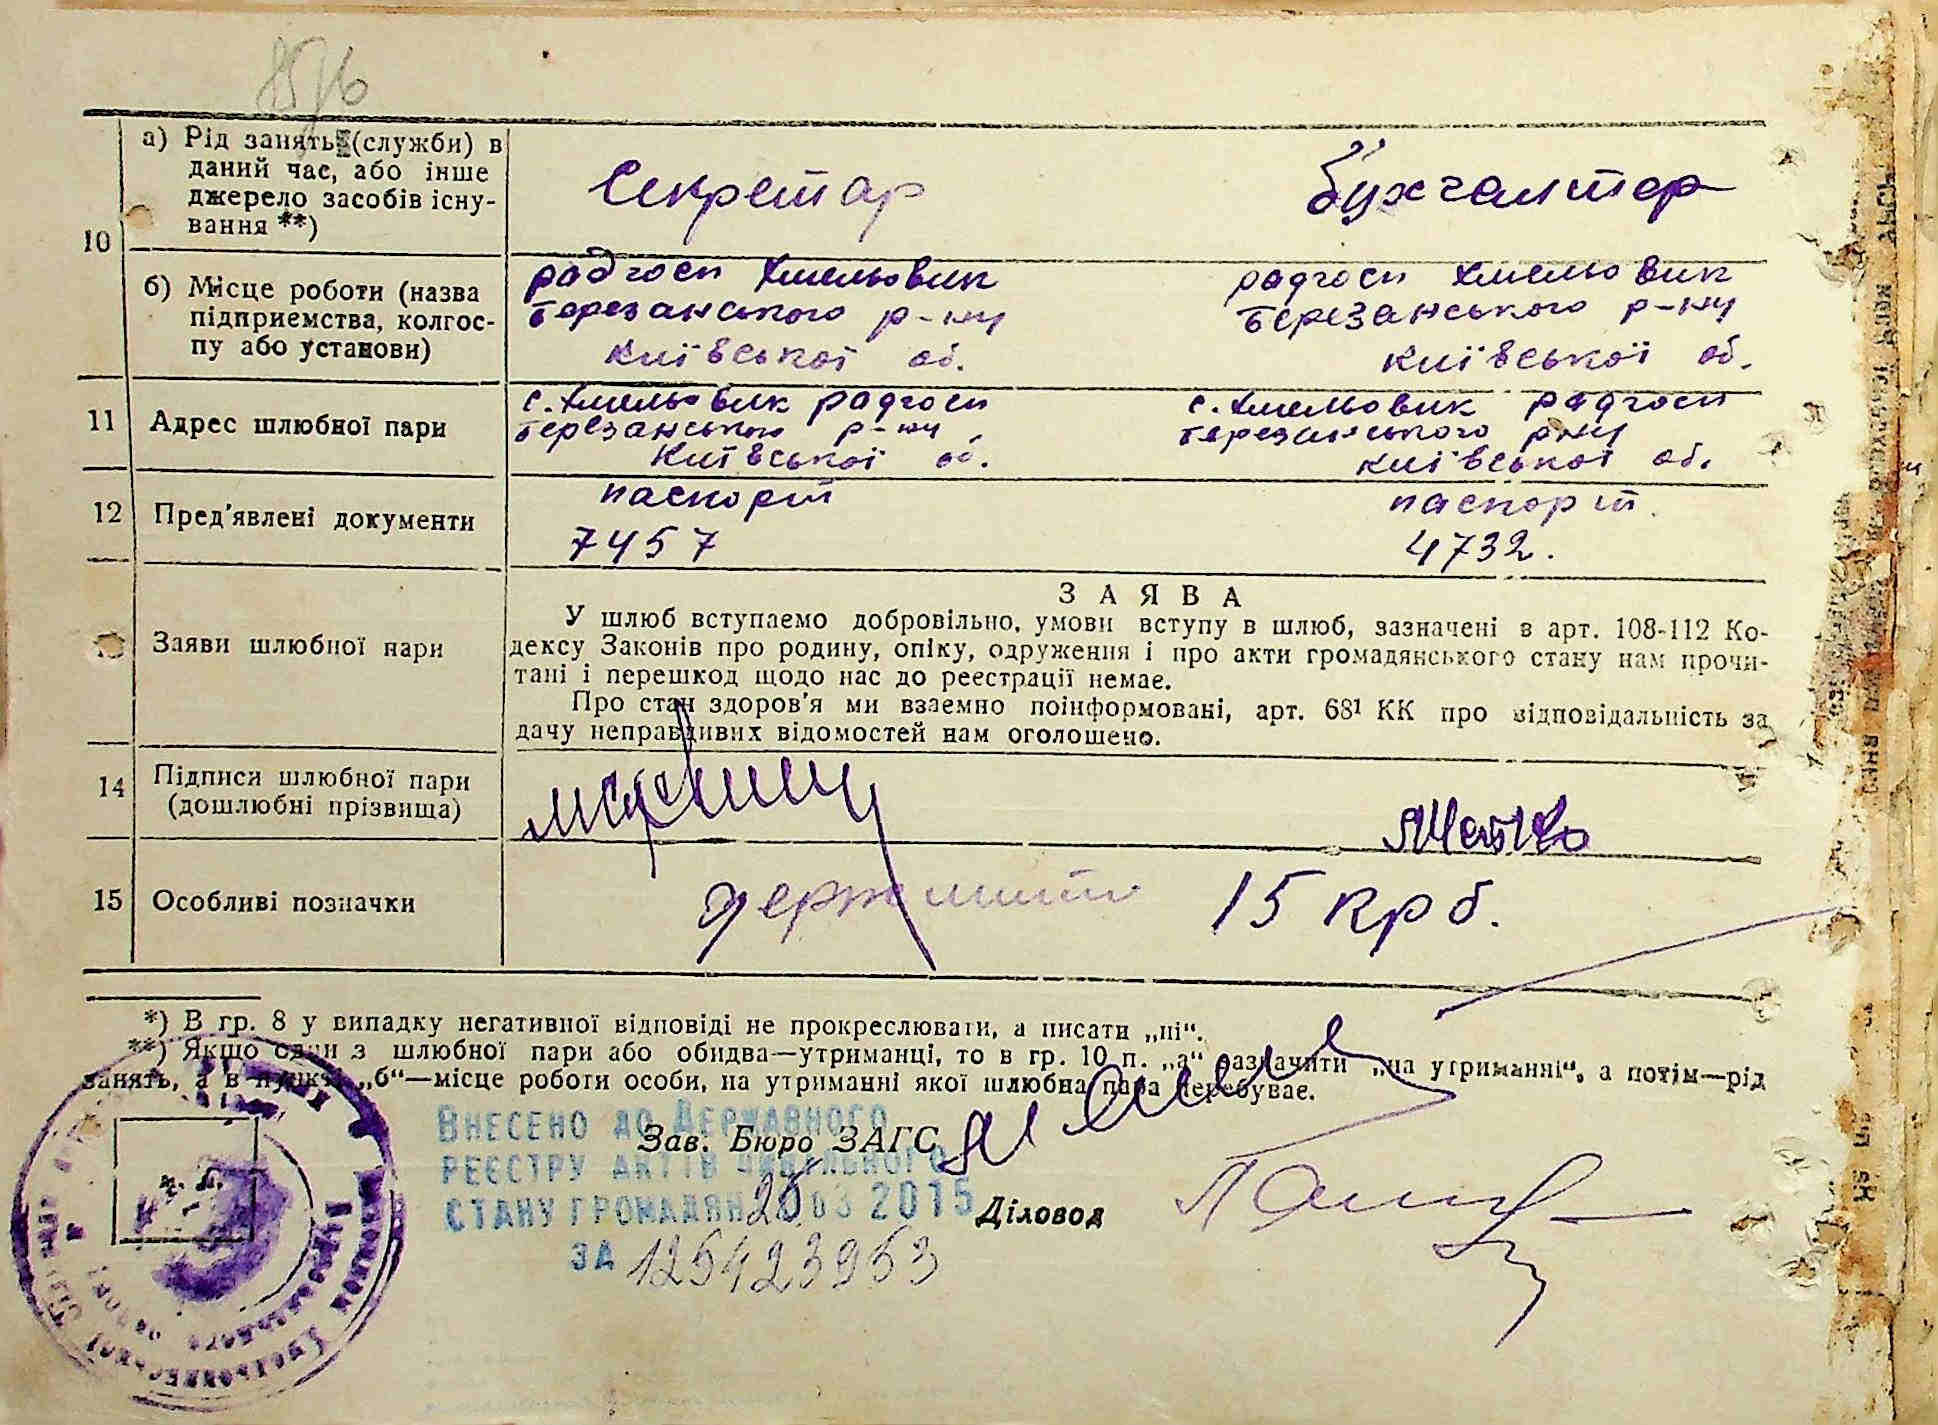 10
а) Рід занять (служби) в
даний час, або інше
джерело засобів існу-
вання **)
Секретар
Бухгалтер
б) Місце роботи (назва
підприємства, колгос-
пу або установи)
радгосп Хмельовик
Березанського р-ну
Київської об.
радгосп Хмельовик
Березанського р-ну
Київської об.
11
Адрес шлюбної пари
с. Хмельовик радгосп
Березанського р-ну,
Київської об.
с. Хмельовик радгосп
Березанського р-ну
Київської об.
12
Пред'явлені документи
паспорт
7457
паспорт.
4732.
Заяви шлюбної пари
ЗАЯВА
У шлюб вступаємо добровільно, умови вступу в шлюб, зазначені в арт. 108-112 Ко-
дексу Законів про родину, опіку, одруження і про акти громадянського стану нам прочи-
тані і перешкод щодо нас до реєстрації немає.
Про стан здоров'я ми взаємно поінформовані, арт. 68¹ КК про відповідальність за
дачу неправдивих відомостей нам оголошено.
14
Підписи шлюбної пари
(дошлюбні прізвища)
15
Особливі позначки
держмито 15 крб.
*) В гр. 8 у випадку негативної відповіді не прокреслювати, а писати „ні“.
**) Якщо один з шлюбної пари або обидва—утриманці, то в гр. 10 п. „а“ зазначити „на утриманні“, а потім—рід
занять, а в пункті „б“—місце роботи особи, на утриманні якої шлюбна пара перебуває.
Зав. Бюро ЗАГС
Діловод
ВНЕСЕНО ДО ДЕРЖАВНОГО
РЕЄСТРУ АКТІВ ЦИВІЛЬНОГО
СТАНУ ГРОМАДЯН 03 2015
ЗА 125423953